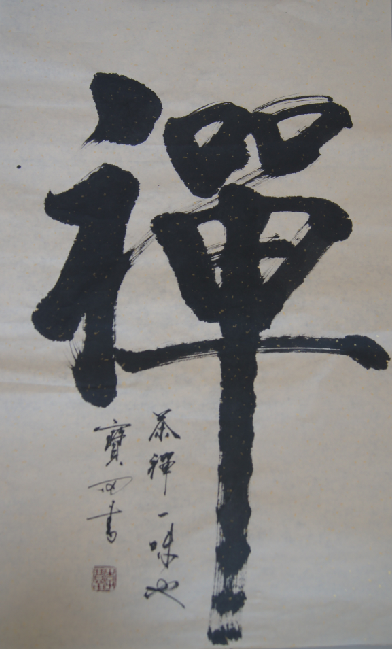 禪
茶禪一味也
寶西書